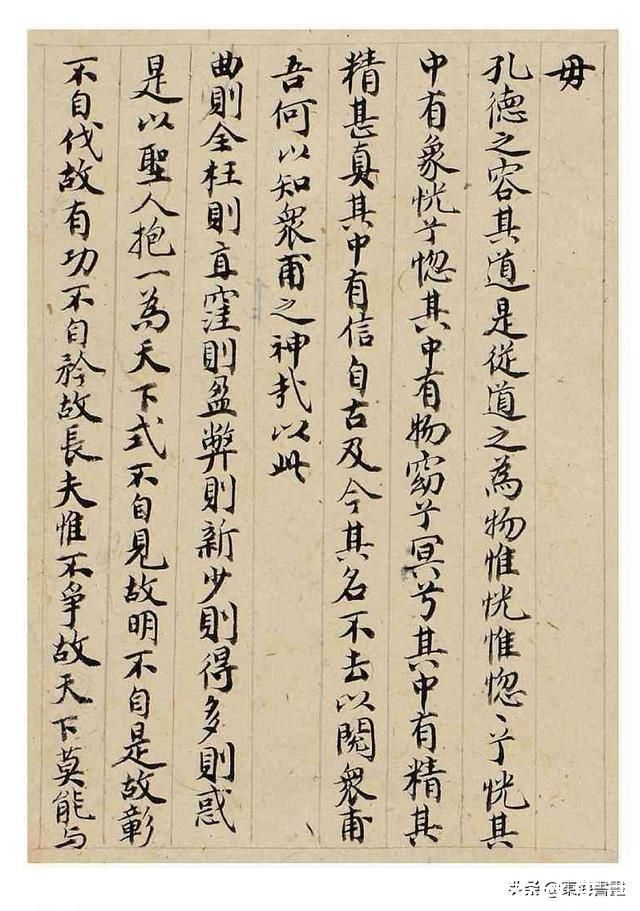 毋
孔德之容其道是従道之為物惟恍惟惚〻兮恍其
中有象恍兮惚其中有物窈兮冥兮其中有精其
精甚真其中有信自古及今其名不去以閱衆甫
吾何以知衆甫之神哉以此
曲則全枉則直窪則盈弊則新少則得多則惑
是以聖人抱一為天下式不自見故明不自是故彰
不自伐故有功不自矜故長夫惟不爭故天下莫能与
头条@東海書畫